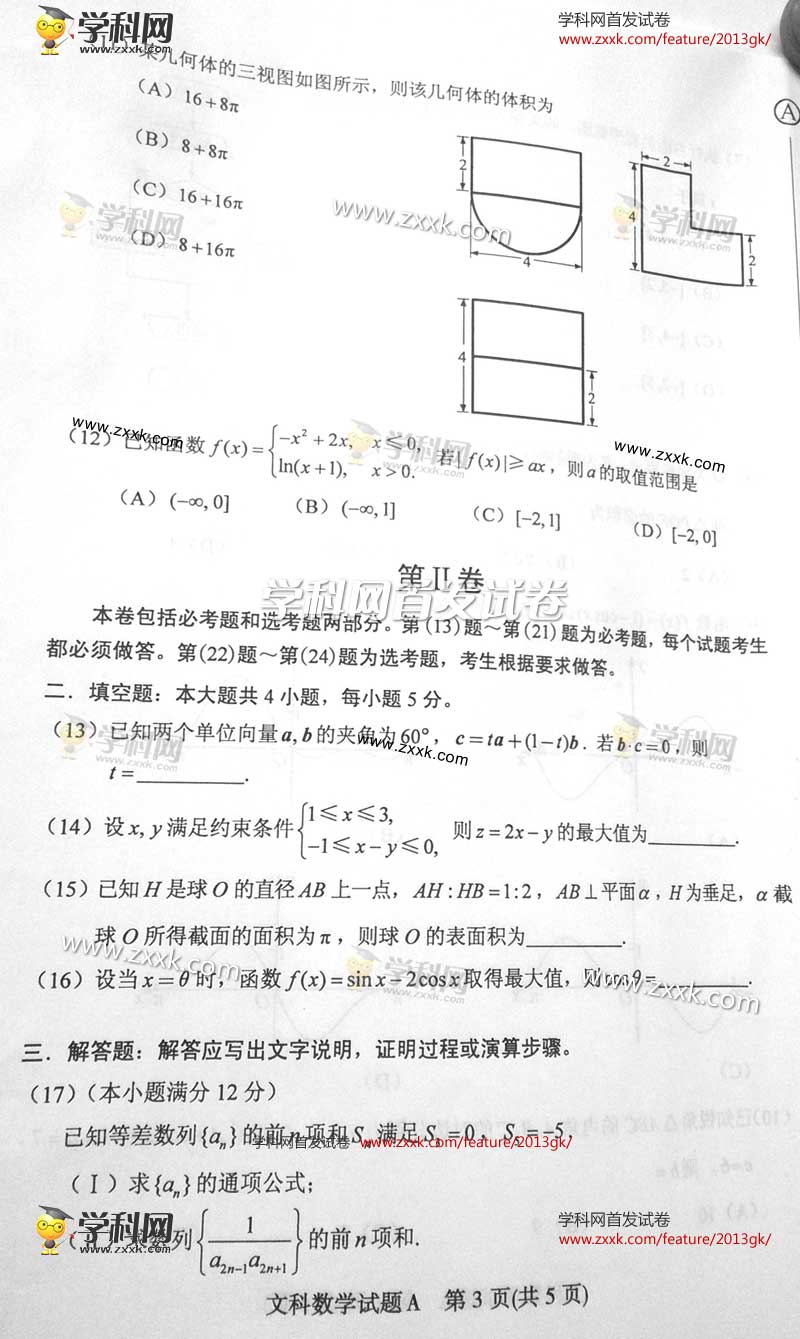 学科网
www.zxxk.com
学科网首发试卷
www.zxxk.com/feature/2013gk/
某几何体的三视图如图所示，则该几何体的体积为
(A) 16+8π
(B) 8+8π
(C) 16+16π
(D) 8+16π
A
2
4
2
4
2
4
2
学科网
www.zxxk.com
www.zxxk.com
学科网
zxxk.com
www.zxxk.com
学科网
zxxk.com
www.zxxk.com
(12) 已知函数 f(x)={−x²+2x, x≤0, ln(x+1), x>0. 若|f(x)|≥ax，则a的取值范围是
(A) (−∞,0] (B) (−∞,1] (C) [−2,1] (D) [−2,0]
第 II 卷
学科网首发试卷
本卷包括必考题和选考题两部分。第(13)题～第(21)题为必考题，每个试题考生
都必须做答。第(22)题～第(24)题为选考题，考生根据要求做答。
二．填空题：本大题共 4 小题，每小题 5 分。
(13) 已知两个单位向量 a, b 的夹角为 60°，c=ta+(1−t)b．若 b·c=0，则
t=________.
学科网
zxxk.com
www.zxxk.com
学科网
zxxk.com
(14) 设 x, y 满足约束条件{1≤x≤3, −1≤x−y≤0, 则 z=2x−y 的最大值为________.
(15) 已知 H 是球 O 的直径 AB 上一点，AH:HB=1:2，AB⊥平面α，H为垂足，α 截
球 O 所得截面的面积为 π，则球 O 的表面积为________.
www.zxxk.com
学科网
zxxk.com
www.zxxk.com
(16) 设当 x=θ 时，函数 f(x)=sin x−2cos x 取得最大值，则cosθ=________.
三．解答题：解答应写出文字说明，证明过程或演算步骤。
(17)（本小题满分 12 分）
已知等差数列{aₙ}的前n项和Sₙ满足S₃=0，S₅=−5．
学科网首发试卷 www.zxxk.com/feature/2013gk/
(Ⅰ) 求{aₙ}的通项公式；
(Ⅱ) 求数列{1/(a₂ₙ₋₁a₂ₙ₊₁)}的前n项和.
学科网
www.zxxk.com
学科网首发试卷
www.zxxk.com/feature/2013gk/
文科数学试题A 第 3 页(共 5 页)